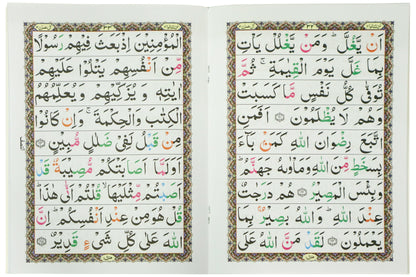 اَنْ يَّغُلَّ ؕ وَمَنْ يَّغْلُلْ يَاْتِ
بِمَا غَلَّ يَوْمَ الْقِيٰمَةِ ۚ ثُمَّ
تُوَفّٰى كُلُّ نَفْسٍ مَّا كَسَبَتْ
وَهُمْ لَا يُظْلَمُوْنَ ۝ اَفَمَنِ
اتَّبَعَ رِضْوَانَ اللّٰهِ كَمَنْۢ بَآءَ
بِسَخَطٍ مِّنَ اللّٰهِ وَمَاْوٰىهُ جَهَنَّمُ ؕ
وَبِئْسَ الْمَصِيْرُ ۝ هُمْ دَرَجٰتٌ
عِنْدَ اللّٰهِ ؕ وَاللّٰهُ بَصِيْرٌۢ بِمَا
يَعْمَلُوْنَ ۝ لَقَدْ مَنَّ اللّٰهُ عَلَى
الْمُؤْمِنِيْنَ اِذْ بَعَثَ فِيْهِمْ رَسُوْلًا
مِّنْ اَنْفُسِهِمْ يَتْلُوْا عَلَيْهِمْ
اٰيٰتِهٖ وَيُزَكِّيْهِمْ وَيُعَلِّمُهُمُ
الْكِتٰبَ وَالْحِكْمَةَ ۚ وَاِنْ كَانُوْا
مِنْ قَبْلُ لَفِيْ ضَلٰلٍ مُّبِيْنٍ ۝
اَوَلَمَّاۤ اَصَابَتْكُمْ مُّصِيْبَةٌ قَدْ
اَصَبْتُمْ مِّثْلَيْهَا ۙ قُلْتُمْ اَنّٰى هٰذَا ؕ
قُلْ هُوَ مِنْ عِنْدِ اَنْفُسِكُمْ ؕ اِنَّ
اللّٰهَ عَلٰى كُلِّ شَيْءٍ قَدِيْرٌ ۝